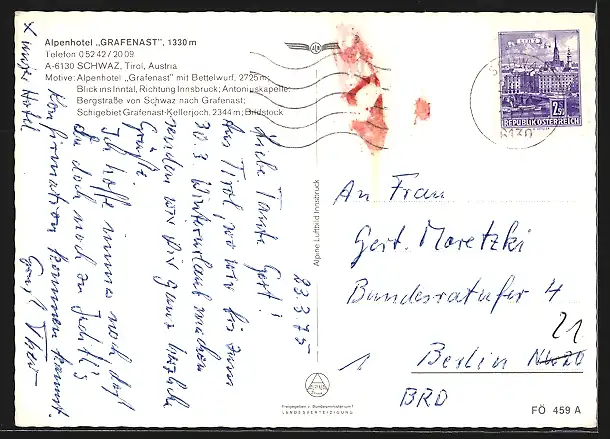 Alpenhotel „GRAFENAST", 1330 m
Telefon 0 52 42 / 20 09
A-6130 SCHWAZ, Tirol, Austria
Motive: Alpenhotel „Grafenast" mit Bettelwurf, 2725 m;
Blick ins Inntal, Richtung Innsbruck; Antoniuskapelle;
Bergstraße von Schwaz nach Grafenast;
Schigebiet Grafenast-Kellerjoch, 2344 m; Bildstock
x unser Hotel
23.3.75
Liebe Tante Gert!
Aus Tirol, wo wir bis zum
30.3 Winterurlaub machen
senden wir Dir ganz herzliche
Grüße
Ich hoffe immer noch, daß
Du doch noch zu Judith's
Konfirmation kommen kannst.
Alpine Luftbild Innsbruck
Freigegeben v. Bundesministerium f.
LANDESVERTEIDIGUNG
LINZ
2.50
REPUBLIK ÖSTERREICH
6130
An Frau
Gert. Moretzki
Bundesratufer 4
1 Berlin 21
BRD
FÖ 459 A